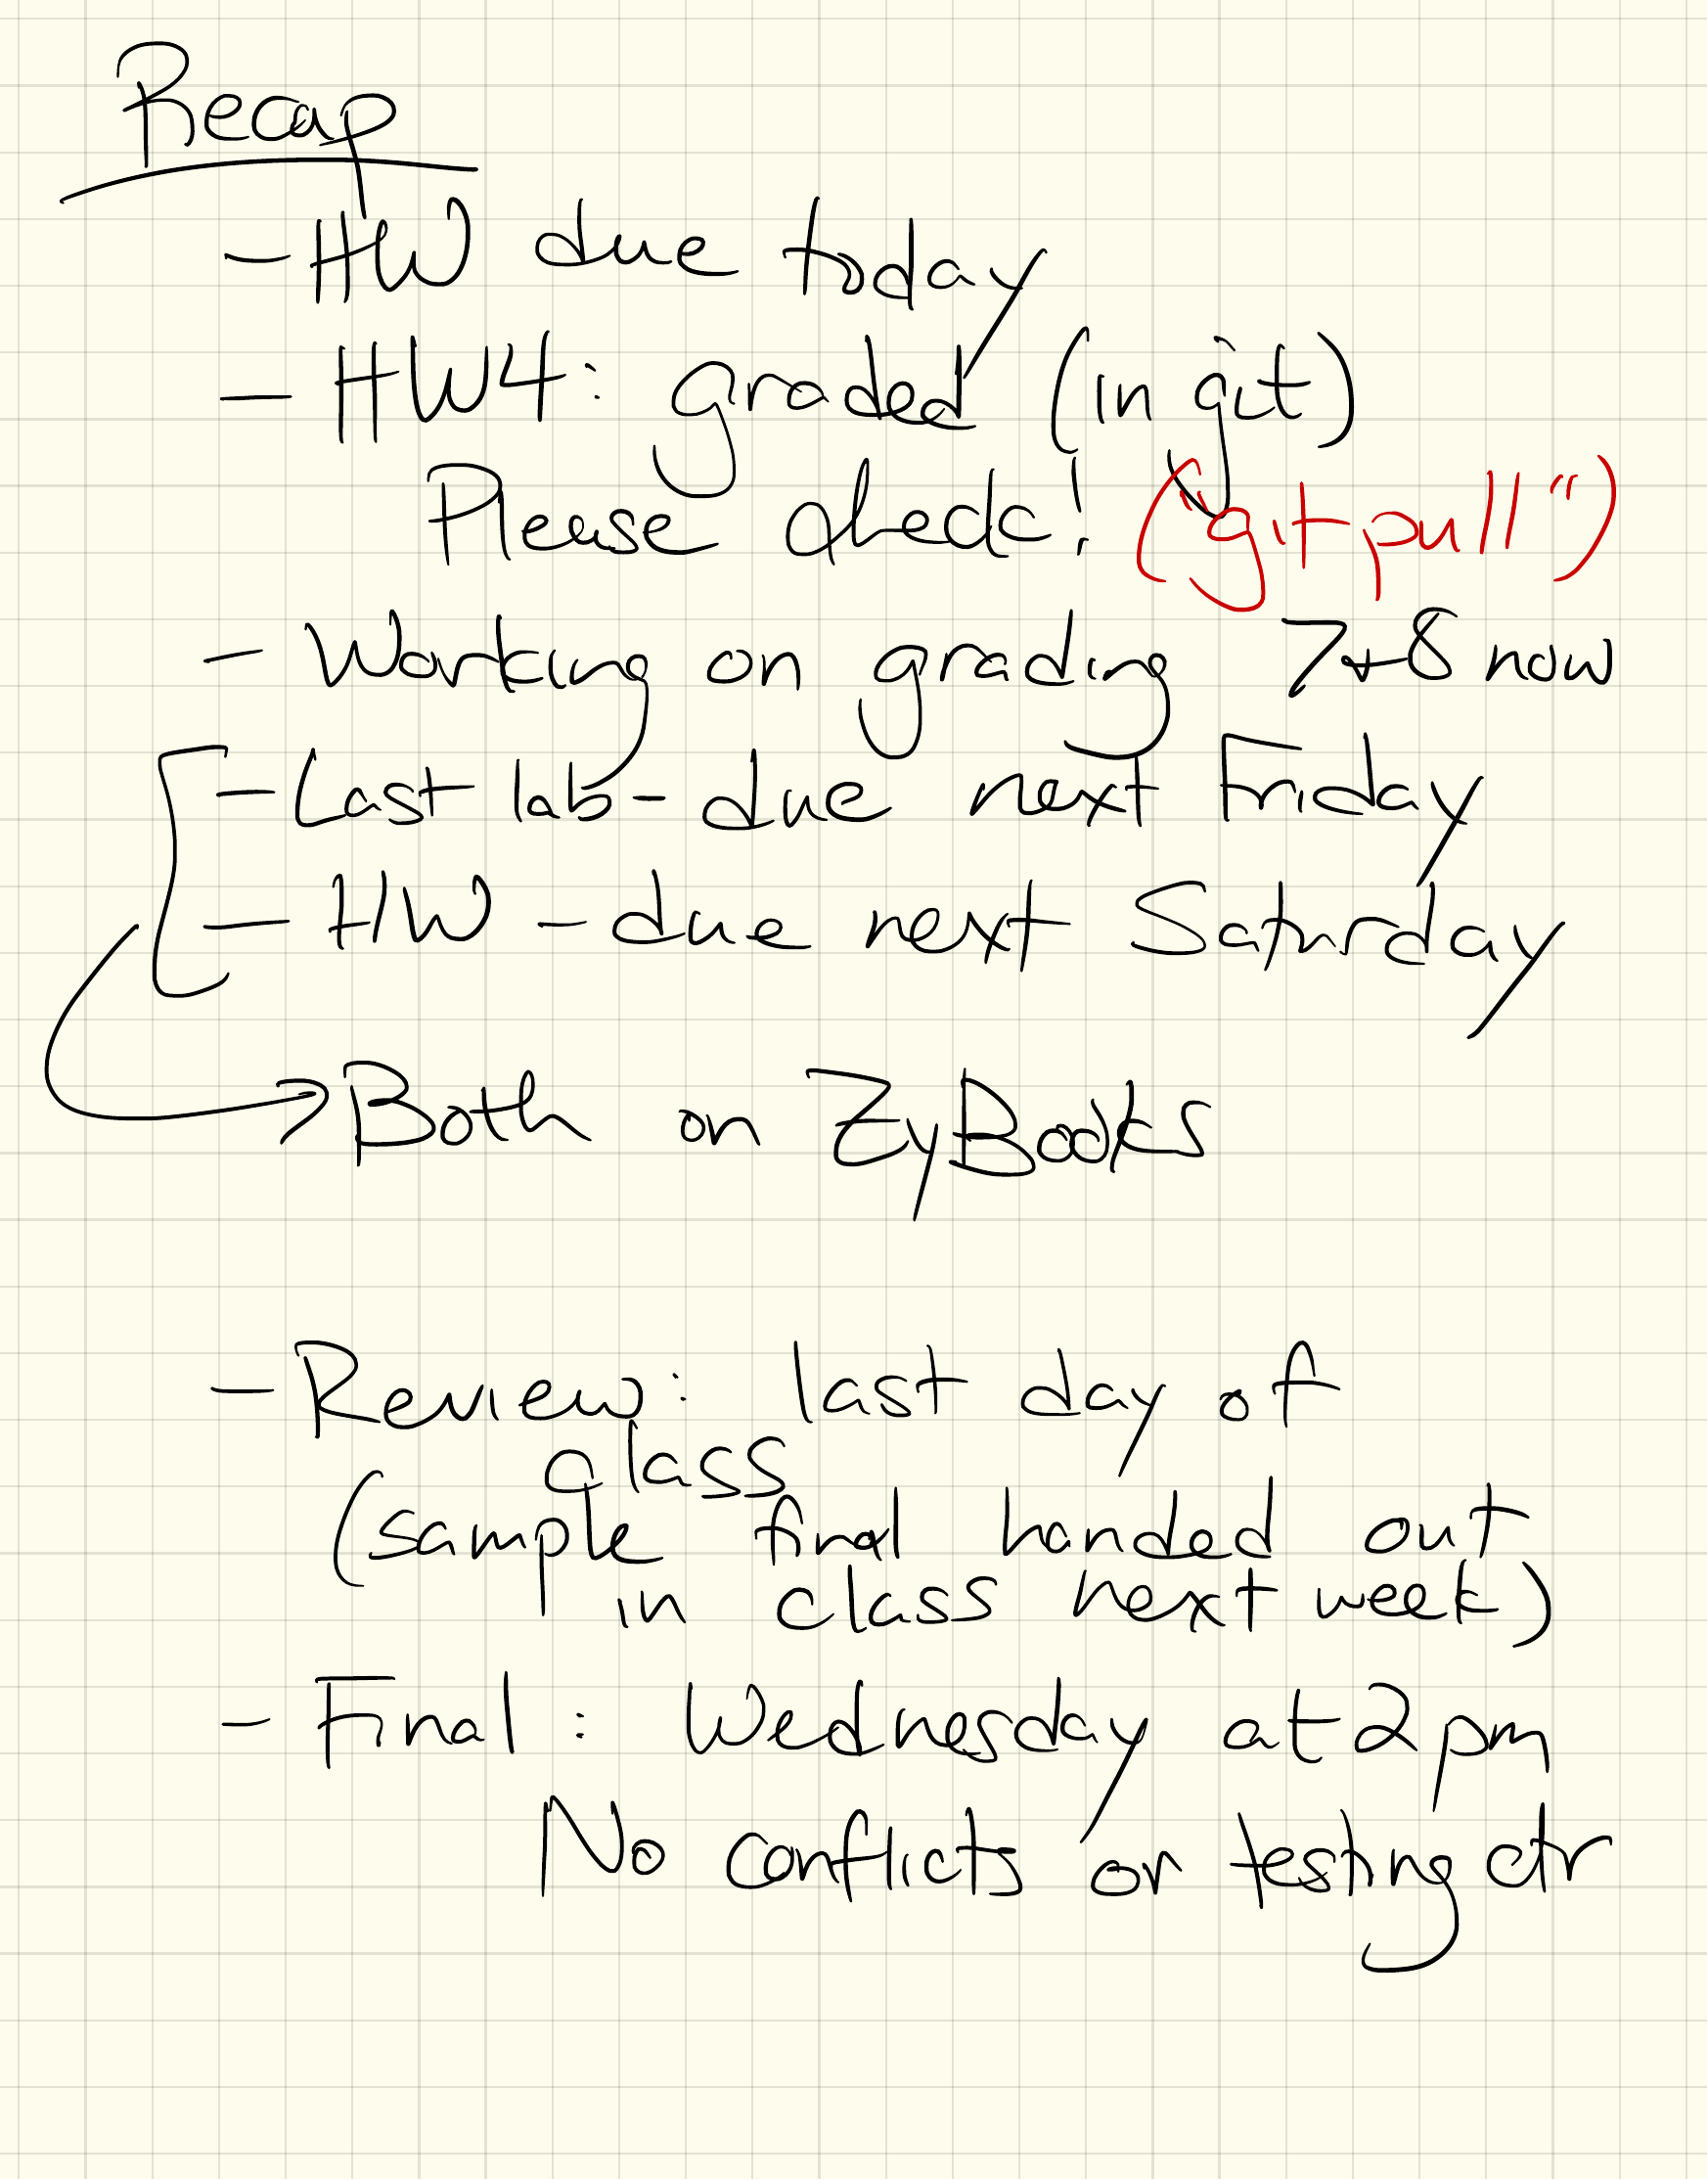 Recap
- HW due today
- HW4: graded (in git)
Please check! ("git pull")
- Working on grading 7+8 now
- Last lab - due next Friday
- HW - due next Saturday
→ Both on ZyBooks
- Review: last day of
class
(sample final handed out
in class next week)
- Final: Wednesday at 2pm
No conflicts or testing ctr